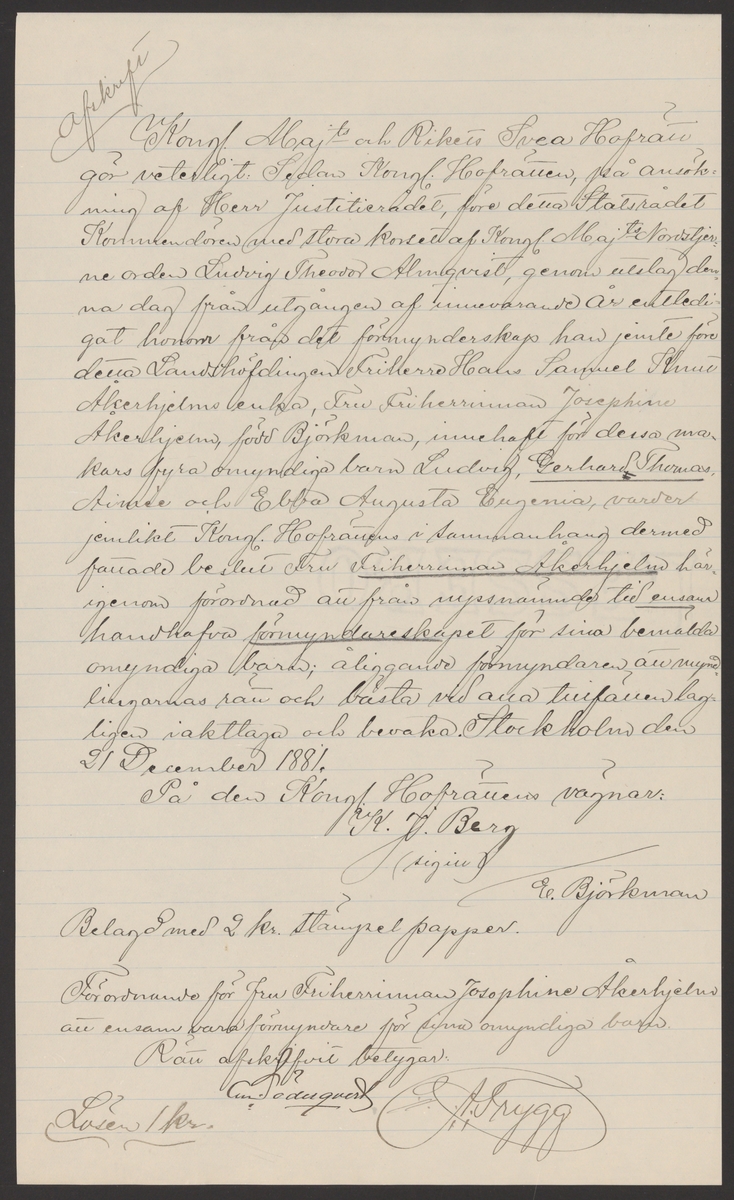 Afskrift
Kongl. Maj:ts och Rikets Svea Hofrätt
gör veterligt: Sedan Kongl. Hofrätten, på ansök-
ning af Herr Justitierådet, före detta Statsrådet
Kommendören med stora korset af Kongl. Maj:ts Nordstjer-
ne orden Ludvig Theodor Almqvist, genom utslag den-
na dag från utgången af innevarande År entledi-
gat honom från det förmynderskap han jemte före
detta Landshöfdingen Friherre Hans Samuel Knut
Åkerhjelms enka, Fru Friherrinnan Josephine
Åkerhjelm, född Björkman, innehaft för dessa ma-
kars fyra omyndiga barn Ludvig, Gerhard Thomas,
Aimée och Ebba Augusta Eugenia, varder
jemlikt Kongl. Hofrättens i sammanhang dermed
fattade beslut Fru Friherrinnan Åkerhjelm här-
igenom förordnad att från nyssnämnde tid ensam
handhafva förmyndareskapet för sina bemälda
omyndiga barn; åliggande förmyndaren att mynd-
lingarnas rätt och bästa vid alla tillfällen lag-
ligen iakttaga och bevaka. Stockholm den
21 December 1881.
På den Kongl. Hofrättens vägnar:
K. J. Berg
(sigill)
E. Björkman
Belagd med 2 kr. stämpel papper.
Förordnande för fru Friherrinnan Josephine Åkerhjelm
att ensam vara förmyndare för sina omyndiga barn.
Rätt afskrifvit betygar:
Söderqvist
A. Trygg
Lösen 1 kr.